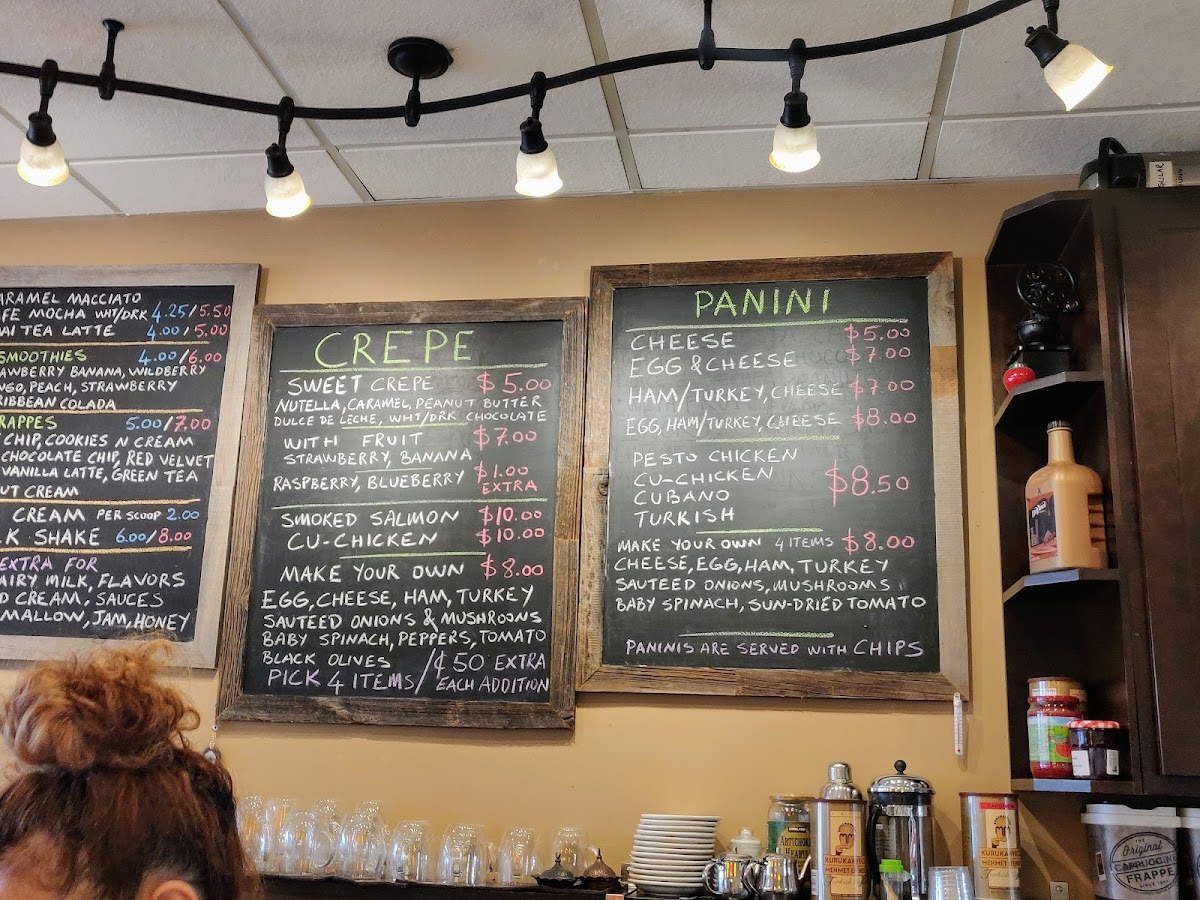 MACCIATO
MOCHA WHT/DRK 4.25/5.50
TEA LATTE 4.00/5.00
SMOOTHIES 4.00/6.00
BANANA, WILDBERRY
PEACH, STRAWBERRY
COLADA
5.00/7.00
CHIP, COOKIES N CREAM
CHOCOLATE CHIP, RED VELVET
VANILLA LATTE, GREEN TEA
CREAM
CREAM PER SCOOP 2.00
SHAKE 6.00/8.00
EXTRA FOR
MILK, FLAVORS
CREAM, SAUCES
JAM, HONEY
CREPE
SWEET CREPE $5.00
NUTELLA, CARAMEL, PEANUT BUTTER
DULCE DE LECHE, WHT/DRK CHOCOLATE
WITH FRUIT $7.00
STRAWBERRY, BANANA
RASPBERRY, BLUEBERRY $1.00
EXTRA
SMOKED SALMON $10.00
CU-CHICKEN $10.00
MAKE YOUR OWN $8.00
EGG, CHEESE, HAM, TURKEY
SAUTEED ONIONS & MUSHROOMS
BABY SPINACH, PEPPERS, TOMATO
BLACK OLIVES
PICK 4 ITEMS/¢50 EXTRA
EACH ADDITION
PANINI
CHEESE $5.00
EGG & CHEESE $7.00
HAM/TURKEY, CHEESE $7.00
EGG, HAM/TURKEY, CHEESE $8.00
PESTO CHICKEN
CU-CHICKEN
CUBANO
TURKISH
$8.50
MAKE YOUR OWN 4 ITEMS $8.00
CHEESE, EGG, HAM, TURKEY
SAUTEED ONIONS, MUSHROOMS
BABY SPINACH, SUN-DRIED TOMATO
PANINIS ARE SERVED WITH CHIPS
ARTICHOKE
HEARTS
MM
MEHMET
MM
MEHMET
THE
Original
CAPPUCCINE
FRAPPE